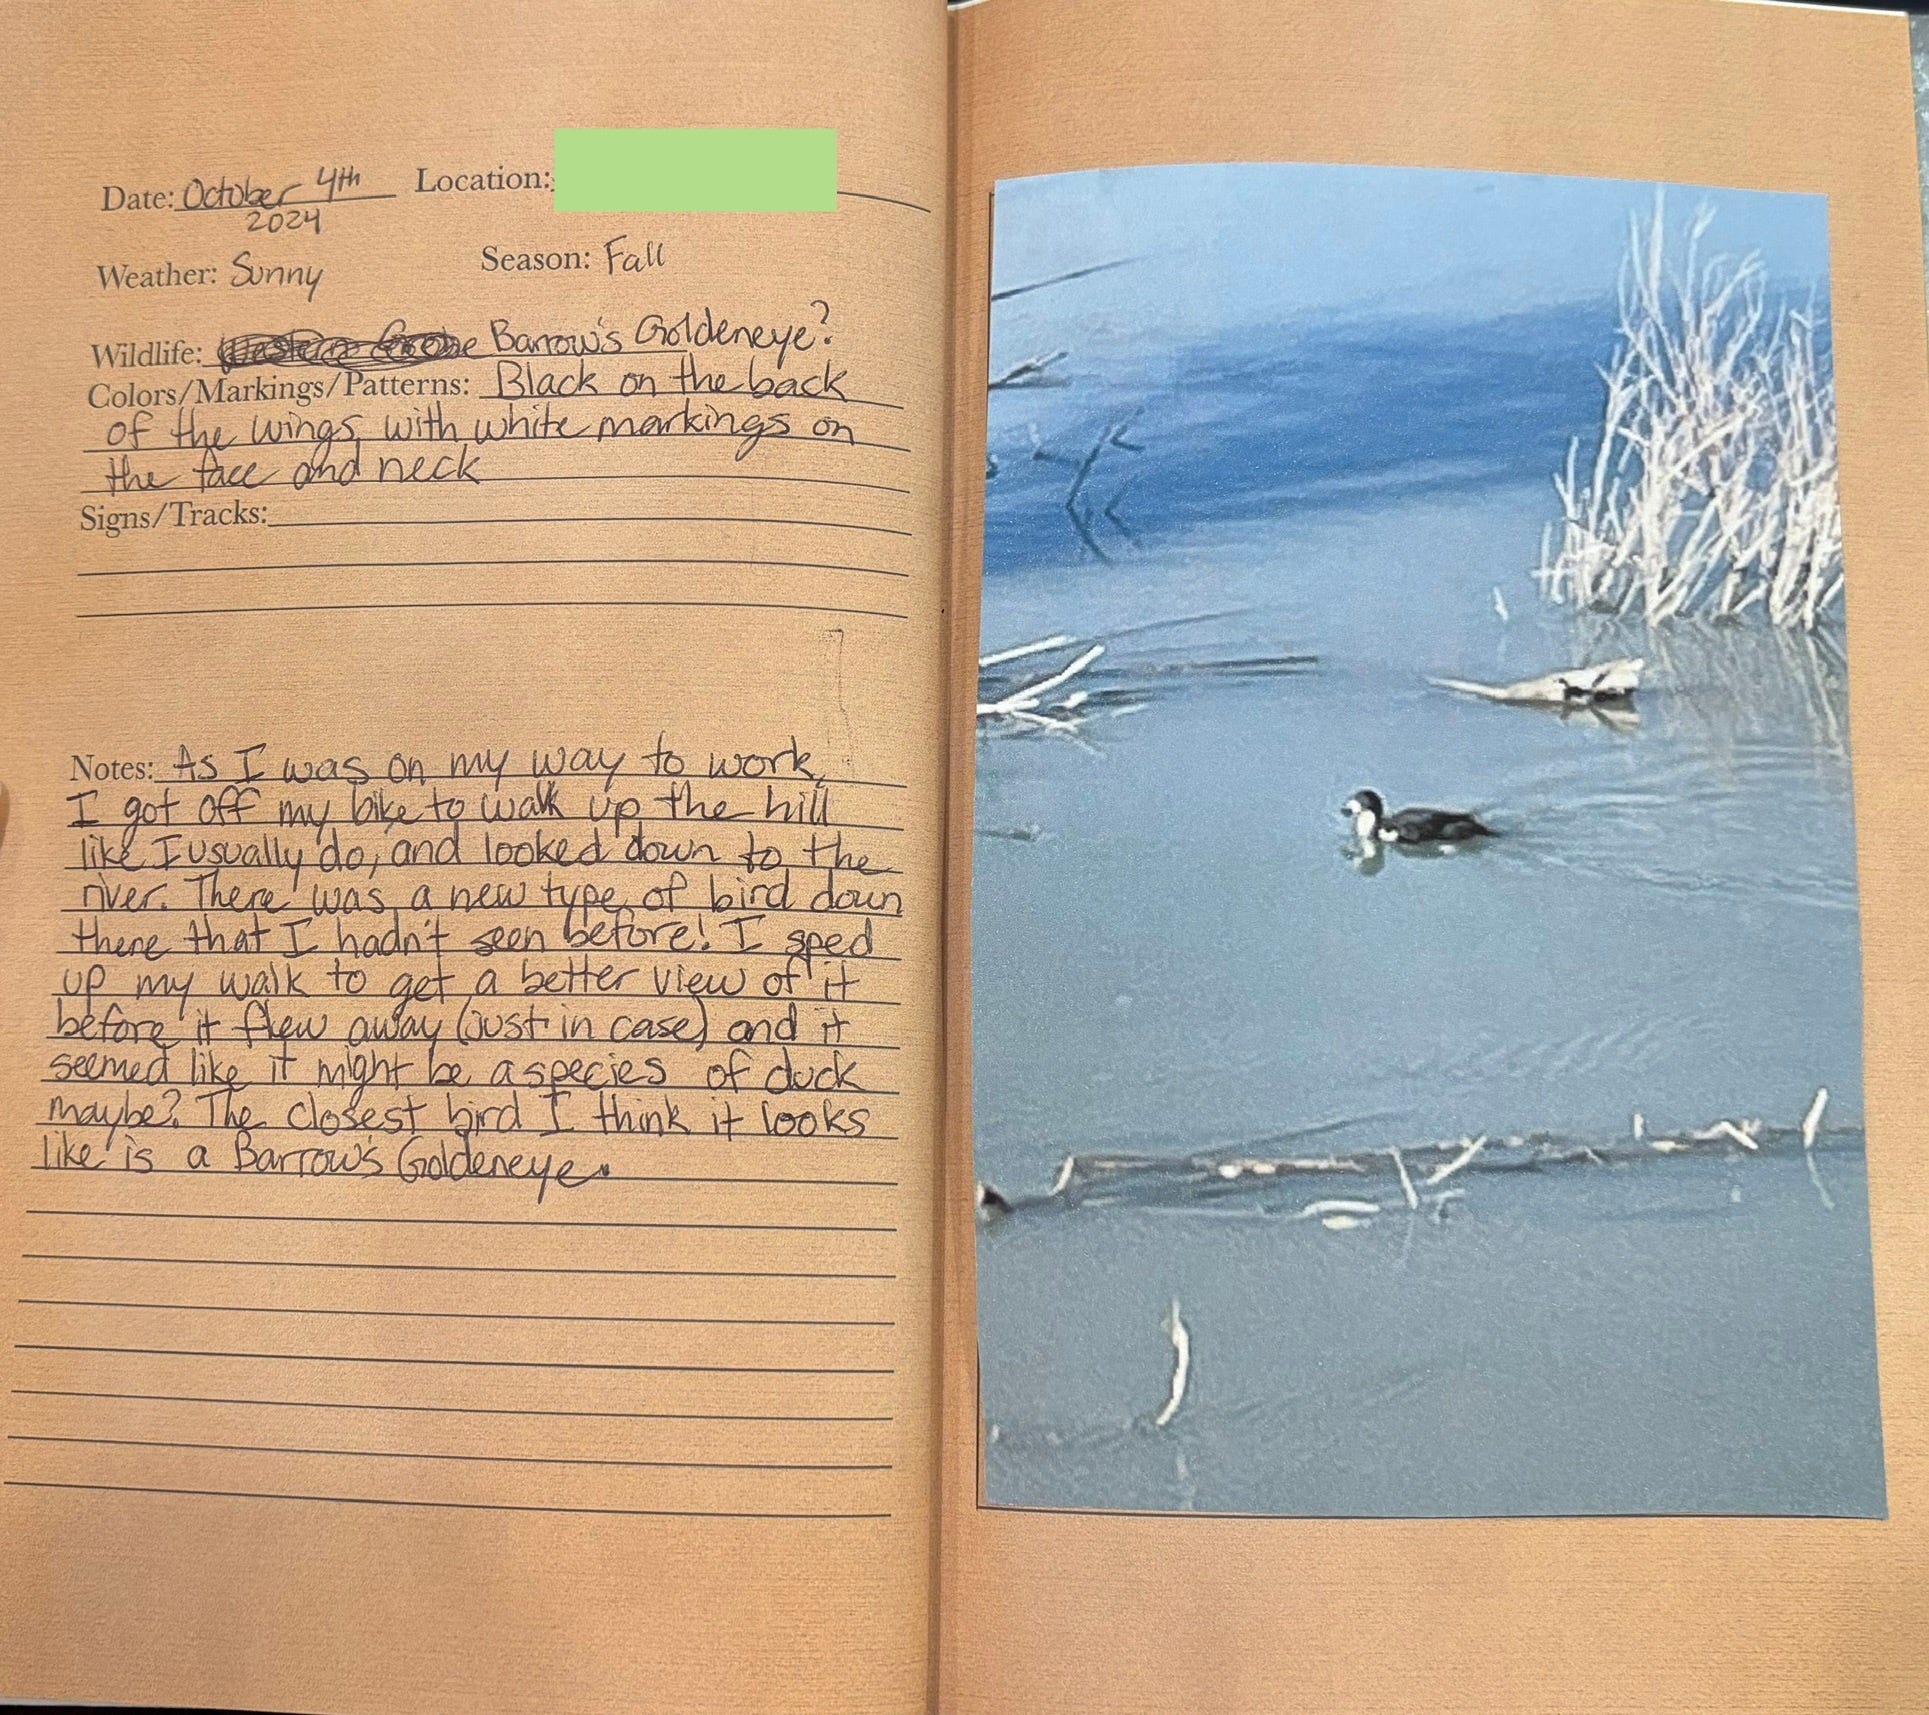 Date: October 4th Location:
2024
Weather: Sunny Season: Fall
Wildlife: Western Grebe Barrow's Goldeneye?
Colors/Markings/Patterns: Black on the back
of the wings, with white markings on
the face and neck
Signs/Tracks:
Notes: As I was on my way to work,
I got off my bike to walk up the hill
like I usually do, and looked down to the
river. There was a new type of bird down
there that I hadn't seen before! I sped
up my walk to get a better view of it
before it flew away (just in case) and it
seemed like it might be a species of duck
maybe? The closest bird I think it looks
like is a Barrow's Goldeneye.